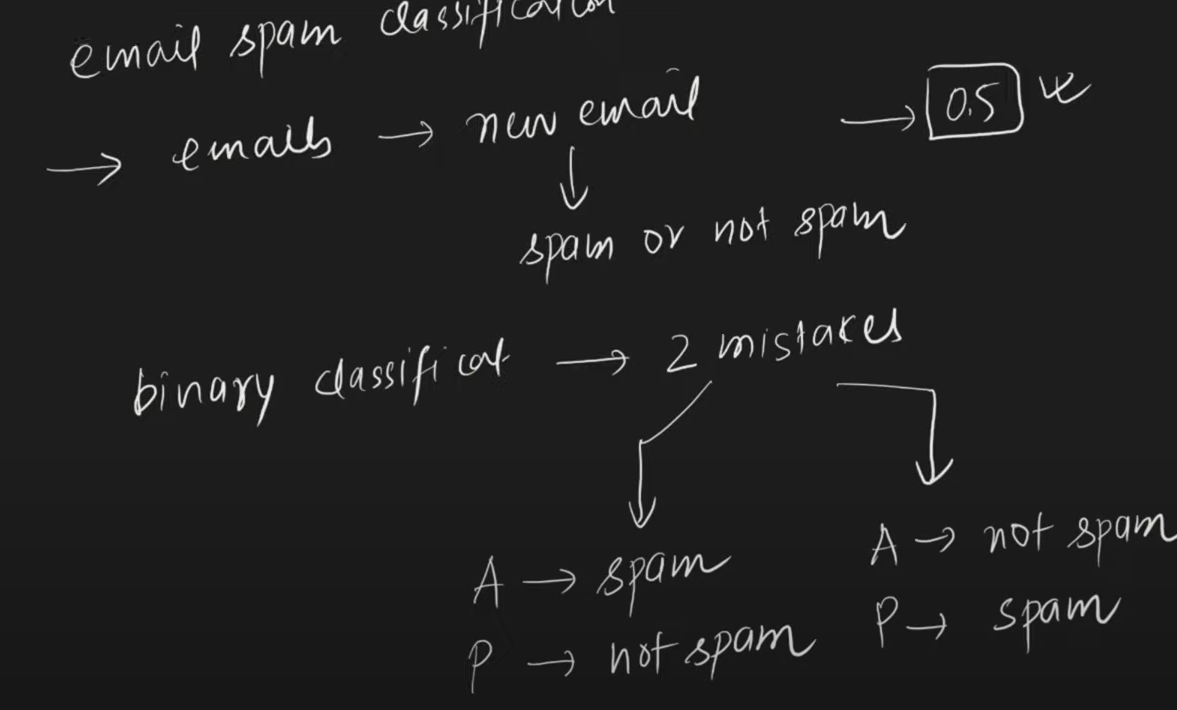 email spam classification
→ emails → new email → 0.5
↓
spam or not spam
binary classificat → 2 mistakes
A → spam
P → not spam
A → not spam
P → spam